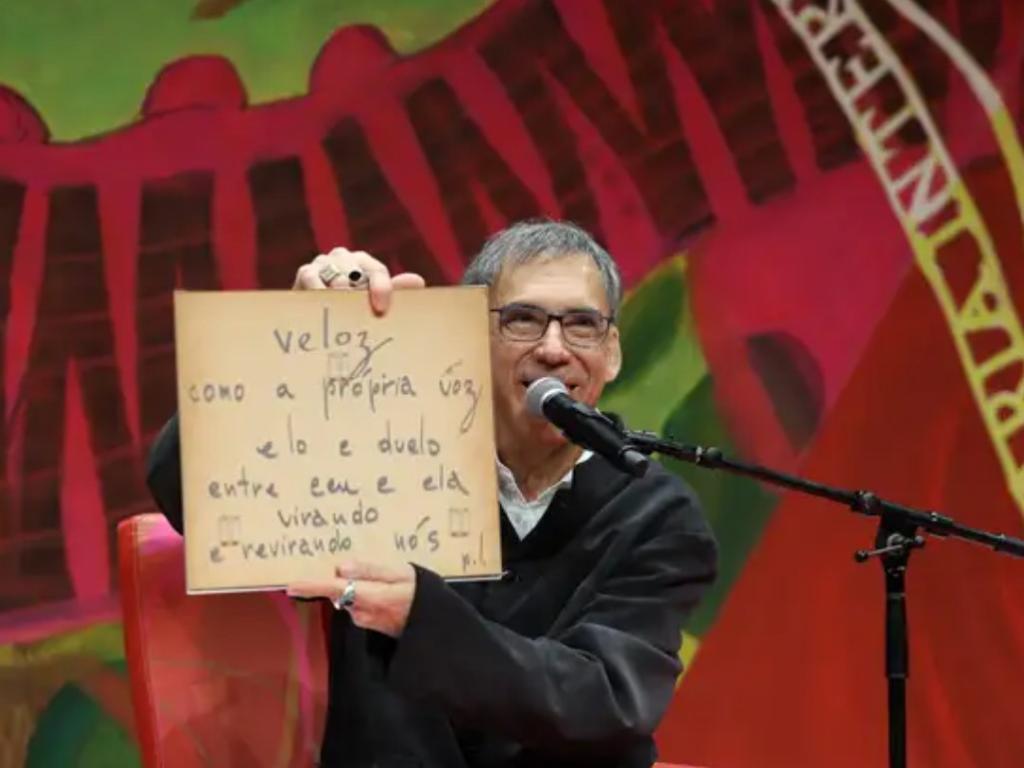 veloz
como a própria voz
elo e duelo
entre eeu e ela
virando
e revirando nós
p.l.